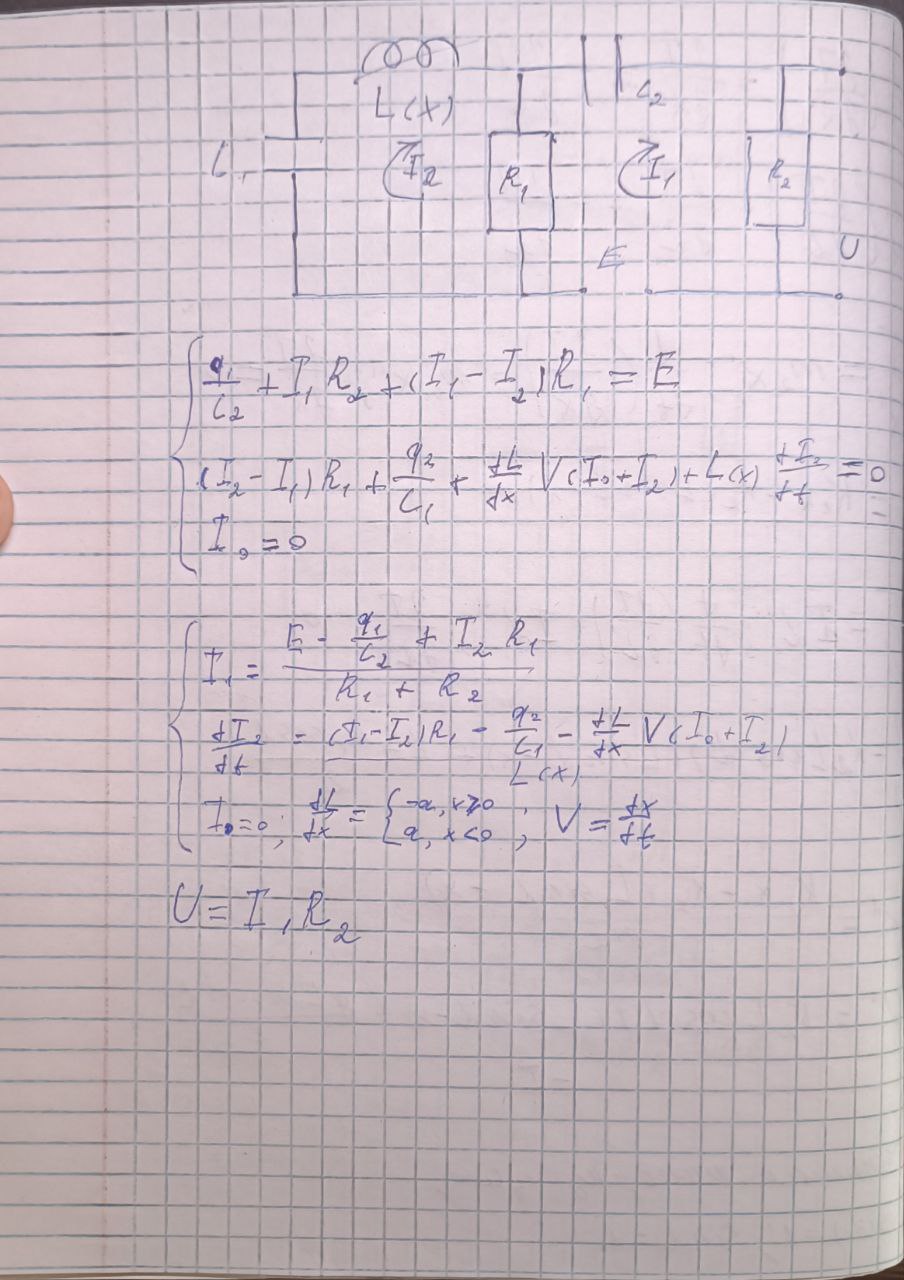 L(x)
C₂
C₁
I₂
R₁
I₁
R₂
E
U
q₁/C₂ + I₁R₂ + (I₁ - I₂)R₁ = E
(I₂ - I₁)R₁ + q₂/C₁ + dL/dx V(I₀ + I₂) + L(x) dI₂/dt = 0
I₀ = 0
I₁ = (E - q₁/C₂ + I₂R₁)/(R₁ + R₂)
dI₂/dt = ((I₁ - I₂)R₁ - q₂/C₁ - dL/dx V(I₀ + I₂))/L(x)
I₀ = 0; dL/dx = { -a, x≥0; a, x<0 ; V = dx/dt
U = I₁R₂